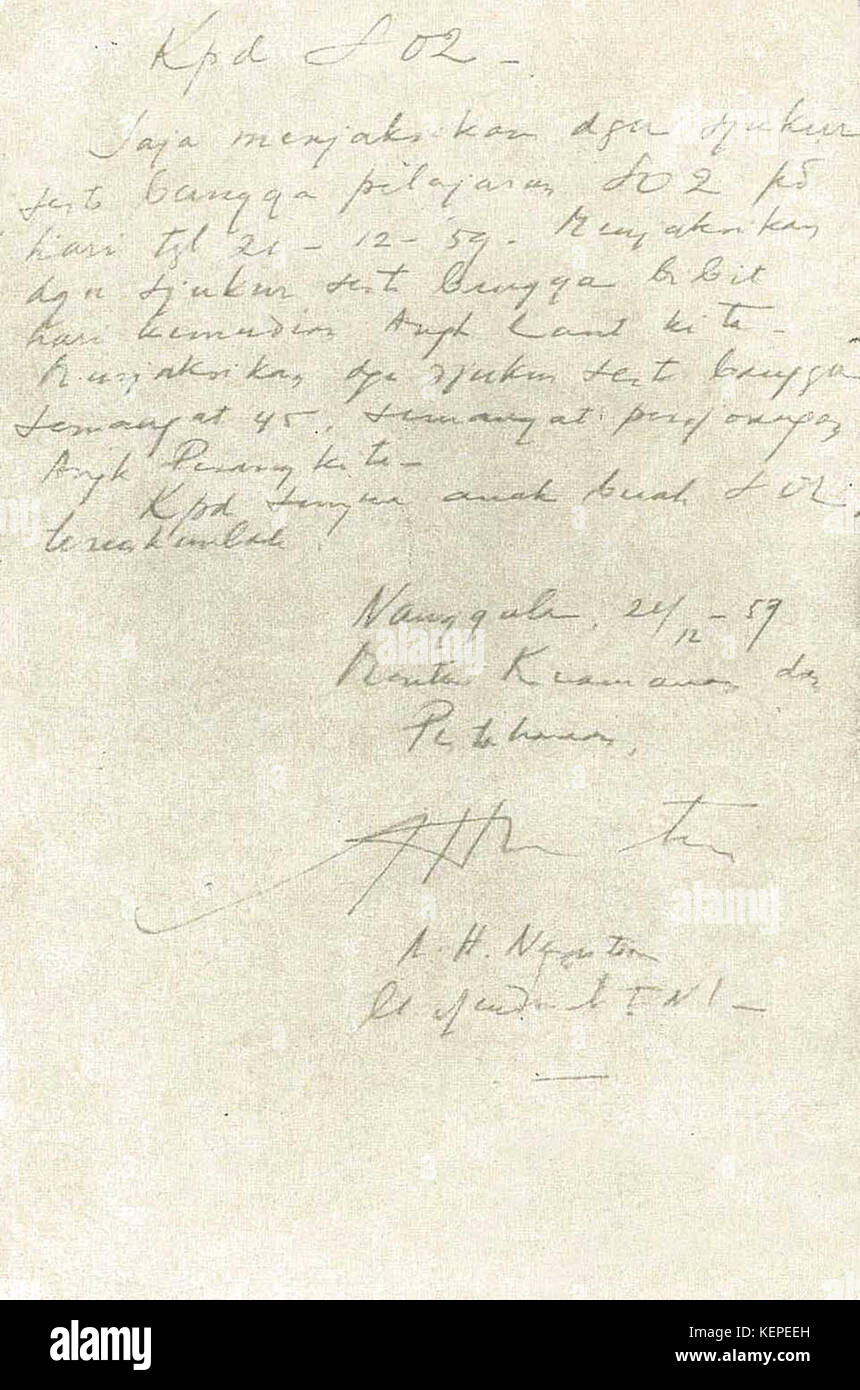 Kpd S02 -
Saja menjaksikan dgn sjukur
serta bangga pelajaran S02 pd
hari tgl 21 - 12 - 59. Menjaksikan
dgn sjukur serta bangga bibit
hari kemudian Angk Laut kita -
Menjaksikan dgn sjukur serta bangga
semangat 45, semangat perdjoangan
Angk Perang kita -
Kpd semua anak buah S02,
Nanggala, 21/12 - 59
Menteri Keamanan dan
Pertahanan,
A. H. Nasution
TNI -
alamy
alamy
alamy
Image ID: KEPEEH
www.alamy.com